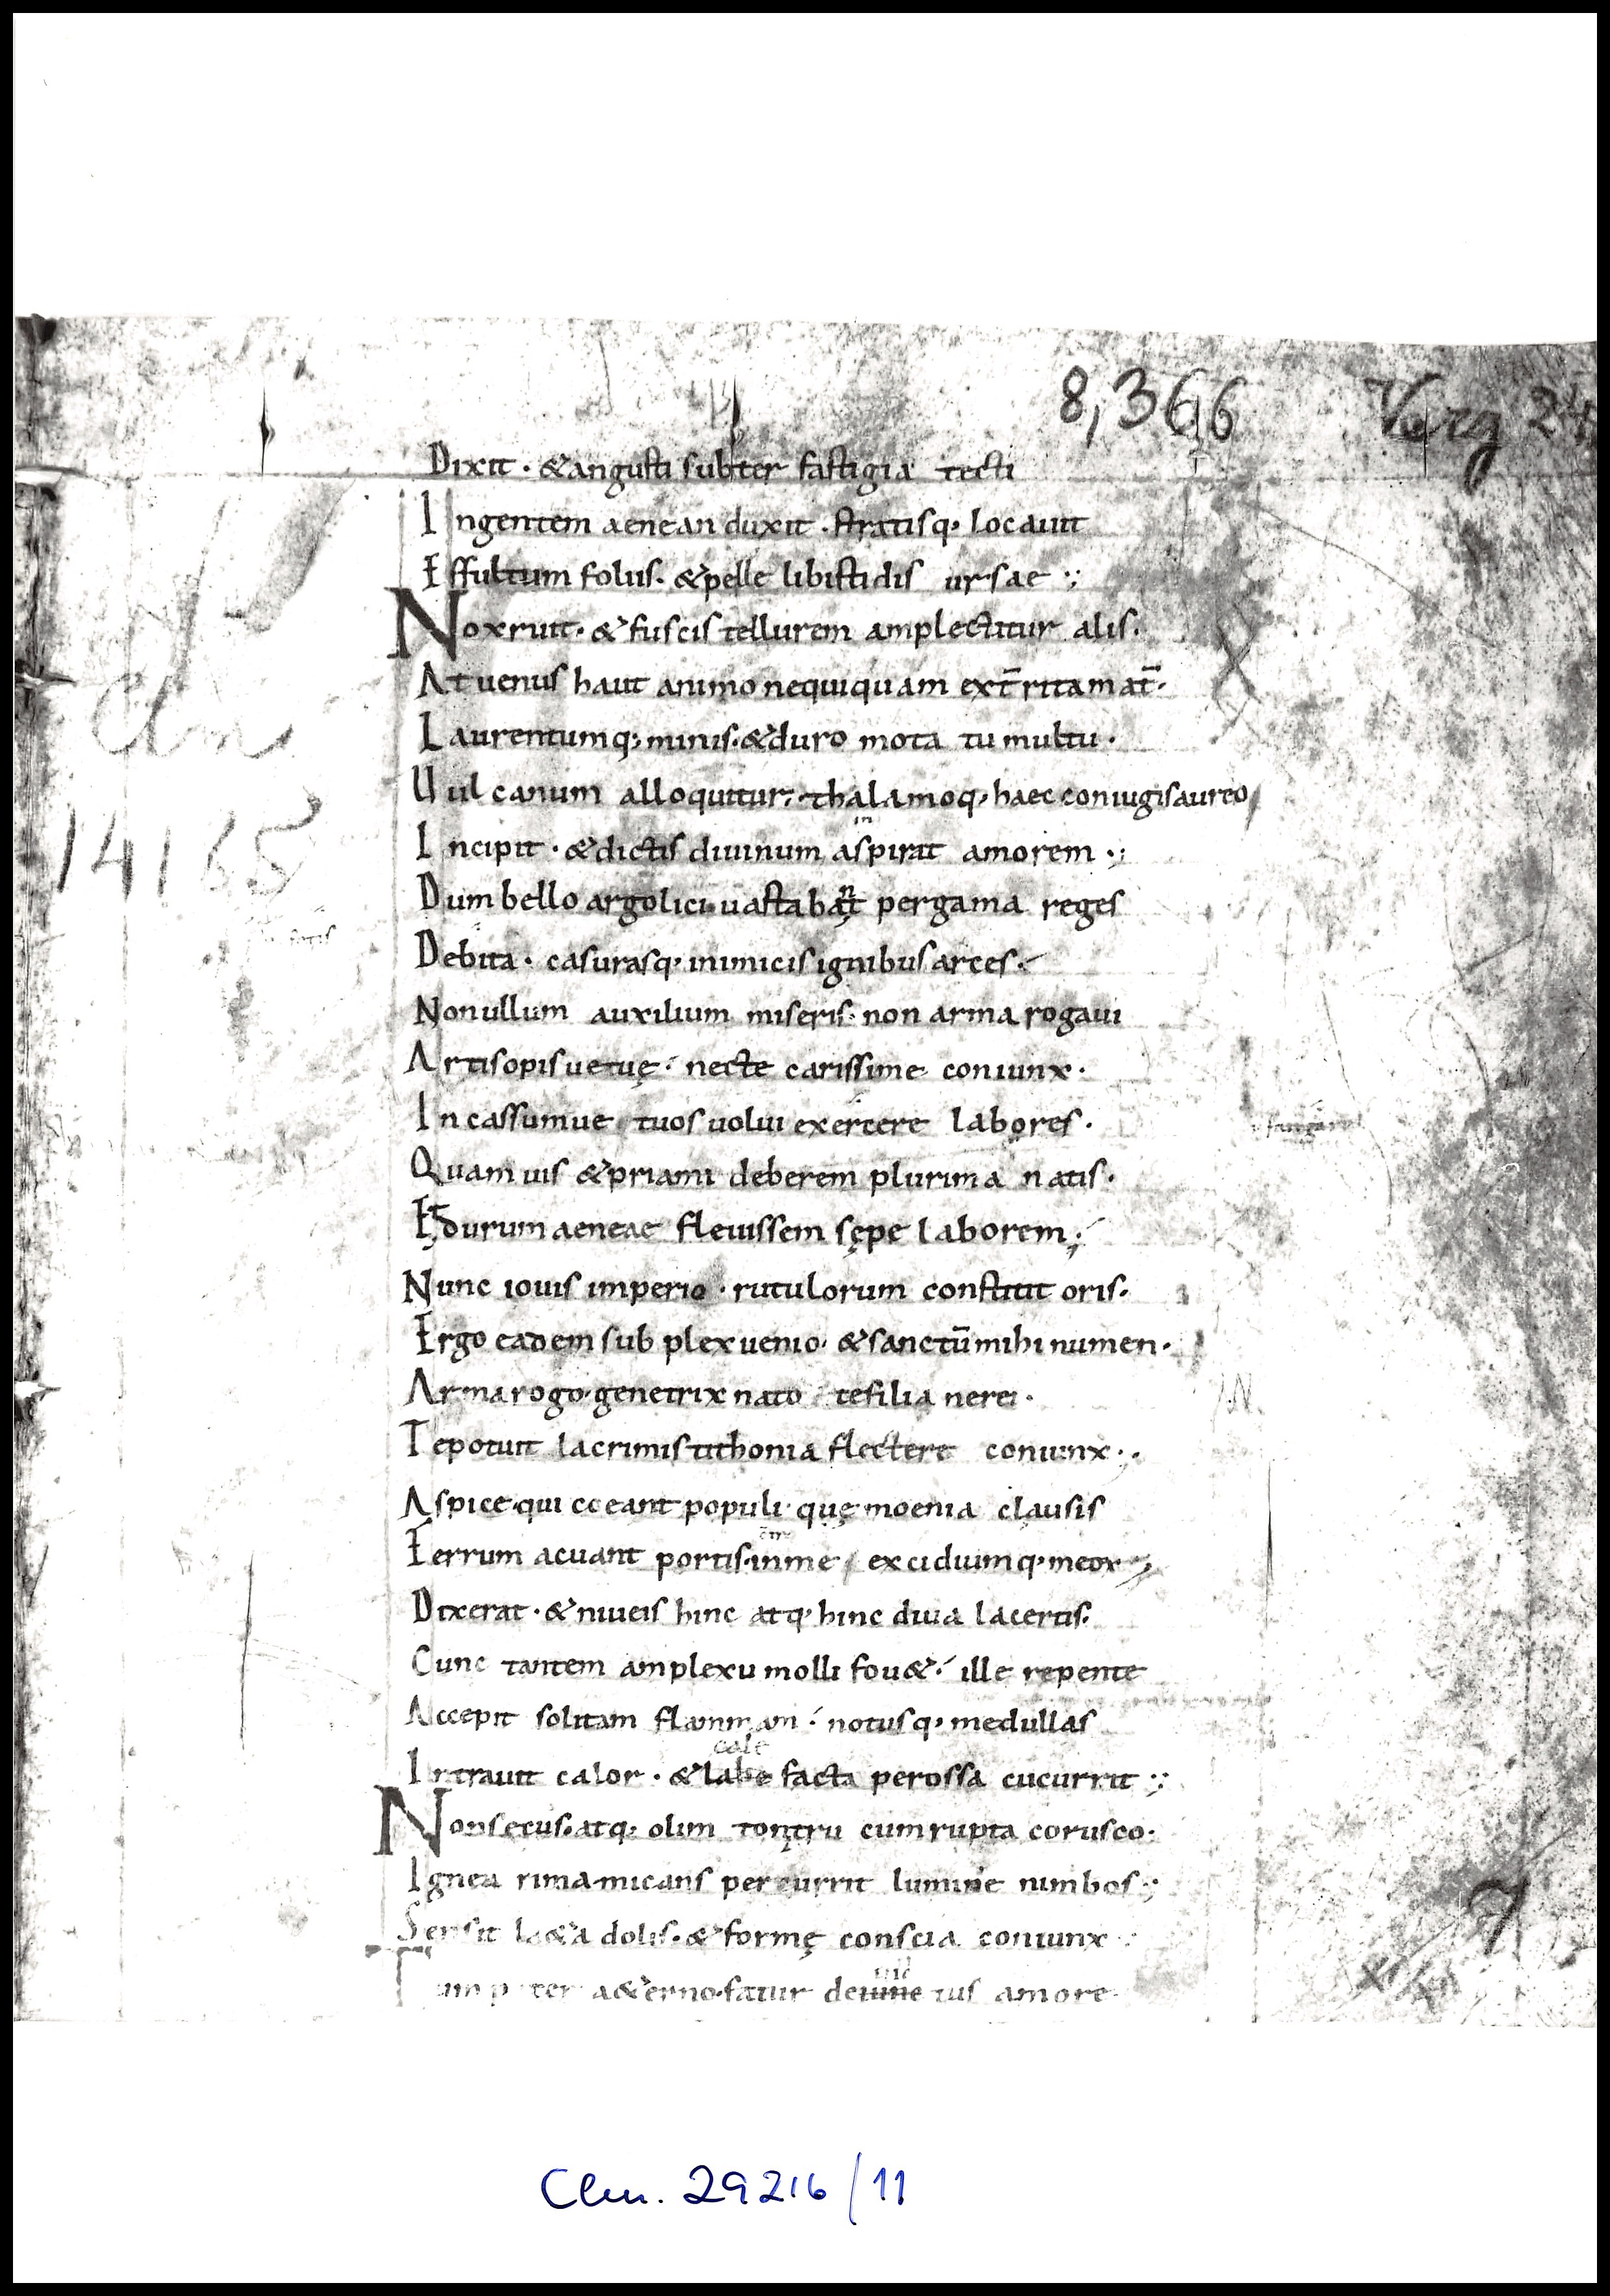 8,366 Verg
Dixit · & angusti subter fastigia tecti
Ingentem aenean duxit · stratisq; locauit
Effultum foliis · & pelle libistidis ursae ·;
Nox ruit · & fuscis tellurem amplectitur alis ·
At uenus haut animo nequiquam ext̄rita mat̄ ·
Laurentumq; minis · & duro mota tumultu ·
Uulcanum alloquitur; thalamoq; haec coniugis aureo
in
Incipit · & dictis diuinum aspirat amorem ·;
Dum bello argolici uastabant pergama reges
Debita · casurasq; inimicis ignibus arces ·
fatis
Non ullum auxilium miseris · non arma rogaui
Artis opis ue tuę · nec te carissime coniunx ·
Incassum ue tuos uolui exercere labores ·
Quamuis & priami deberem plurima natis ·
Et durum aeneae fleuissem sępe laborem ;
Nunc iouis imperio · rutulorum constitit oris ·
Ergo eadem sub plex uenio · & sanctū mihi numen ·
Arma rogo · genetrix nato te filia nerei ·
Te potuit lacrimis tithonia flectere coniunx ·,·
Aspice · qui coeant populi · quę moenia clausis
Ferrum acuant portis · in me excidiumq; meor
Dixerat · & niueis hinc atq; hinc diua lacertis ·
Cunc tantem amplexu molli fou& · ille repente
Accepit solitam flammam · notusq; medullas
cale
Intrauit calor · & labe facta per ossa cucurrit ·;
Non secus · atq; olim tonitru cum rupta corusco ·
Ignea rima micans percurrit lumine nimbos ·;
Sensit l&a dolis · & formę conscia coniunx
Tum pater a&erno · fatur deuine tus amore ·
Clm
14165
7
Clm. 29216/11